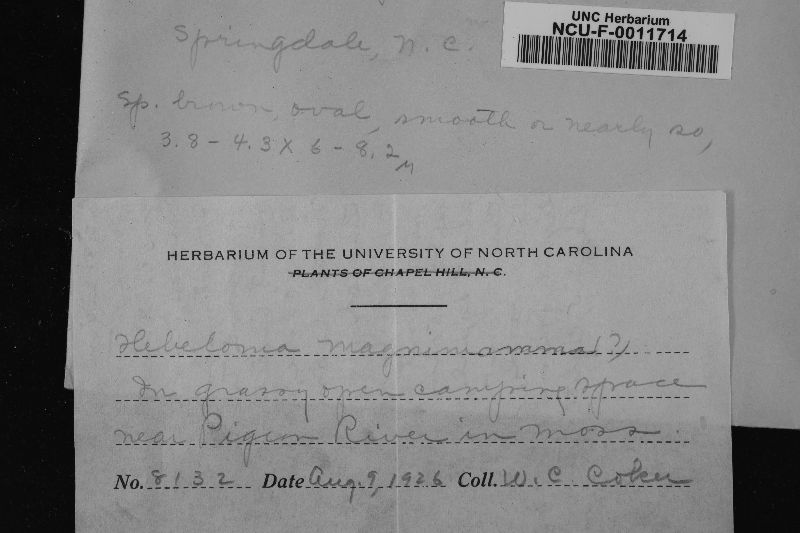 Springdale, N.C.
UNC Herbarium
NCU-F-0011714
Sp. brown, oval, smooth or nearly so,
3.8 - 4.3 X 6 - 8.2 µ
HERBARIUM OF THE UNIVERSITY OF NORTH CAROLINA
PLANTS OF CHAPEL HILL, N. C.
Hebeloma magnimamma (?)
In grassy open camping space
near Pigeon River in moss.
No. 8132 Date Aug. 9, 1926 Coll. W. C. Coker